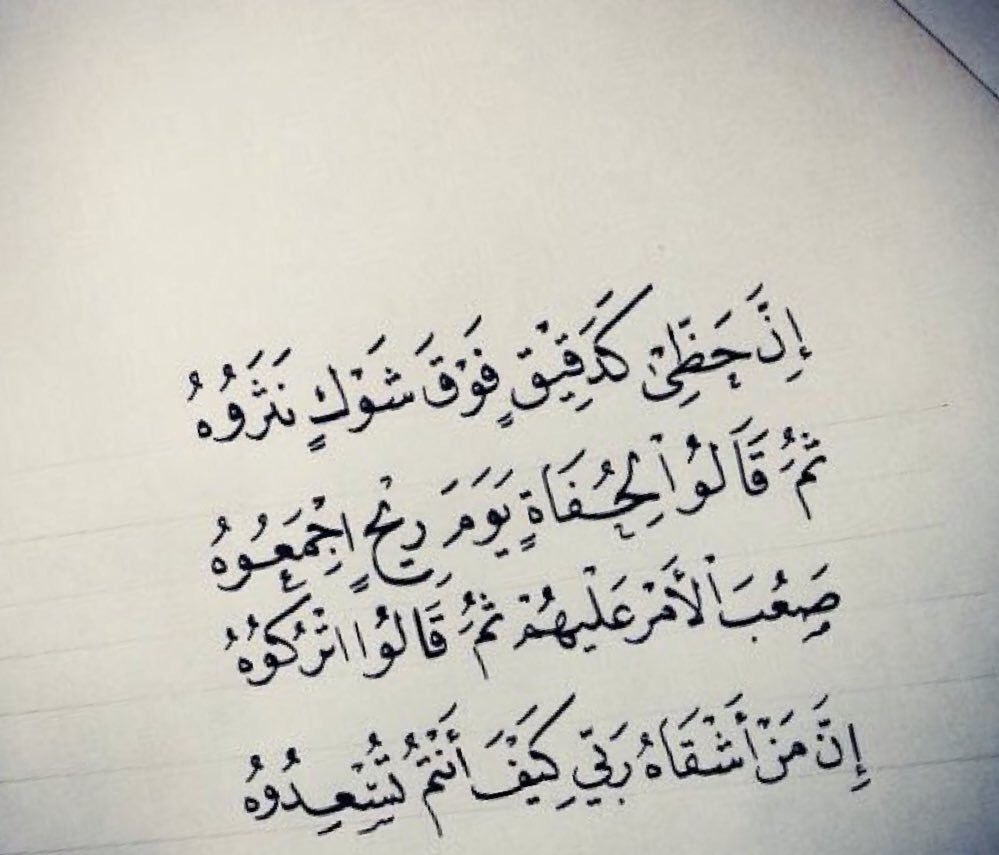 إِنَّ حَظِّيْ كَدَقِيْقٍ فَوْقَ شَوْكٍ نَثَرُوهُ
ثُمَّ قَالُوا لِحُفَاةٍ يَوَمَ رِيْحٍ اِجْمَعُوهُ
صَعُبَ الْأَمْرُ عَلَيْهُمْ ثُمَّ قَالُوا اتْرُكُوُهُ
إِنَّ مَنْ أَشْقَاهُ رَبِّي كَيْفَ أَنْتُمْ تُسْعِدُوهُ